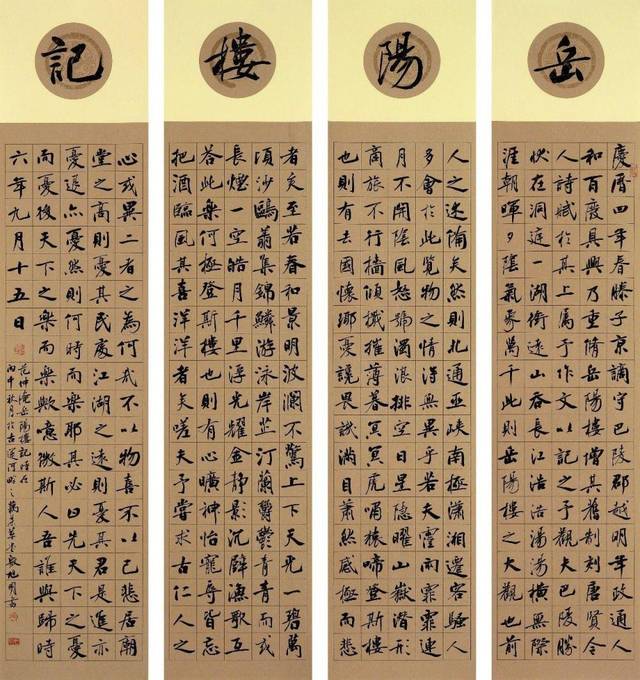 岳陽樓記
慶曆四年春滕子京謫守巴陵郡越明年政通
和百廢具興乃重脩岳陽樓增其舊制刻唐賢今
人詩賦於其上屬予作文以記之予觀夫巴陵勝
狀在洞庭一湖銜遠山吞長江浩浩湯湯橫無際
涯朝暉夕陰氣象萬千此則岳陽樓之大觀也前
人之述備矣然則北通巫峽南極瀟湘遷客騷人
多會於此覽物之情得無異乎若夫霪雨霏霏連
月不開陰風怒號濁浪排空日星隱曜山嶽潛形
商旅不行檣傾檝摧薄暮冥冥虎嘯猿啼登斯樓
也則有去國懷鄉憂讒畏譏滿目蕭然感極而悲
者矣至若春和景明波瀾不驚上下天光一碧萬
頃沙鷗翔集錦鱗游泳岸芷汀蘭鬱鬱青青而或
長煙一空皓月千里浮光耀金靜影沉璧漁歌互
答此樂何極登斯樓也則有心曠神怡寵辱皆忘
把酒臨風其喜洋洋者矣嗟夫予嘗求古仁人之
心或異二者之為何哉不以物喜不以己悲居廟
堂之高則憂其民處江湖之遠則憂其君是進亦
憂退亦憂然則何時而樂耶其必曰先天下之憂
而憂後天下之樂而樂歟噫微斯人吾誰與歸時
六年九月十五日
范仲淹岳陽樓記
丙申秋月於古運河畔